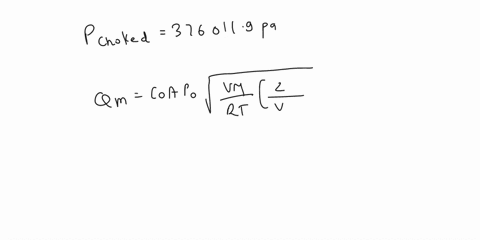 Pchoked = 376011.9 pa
Qm = CoA Po √ VM/RT ( 2/V